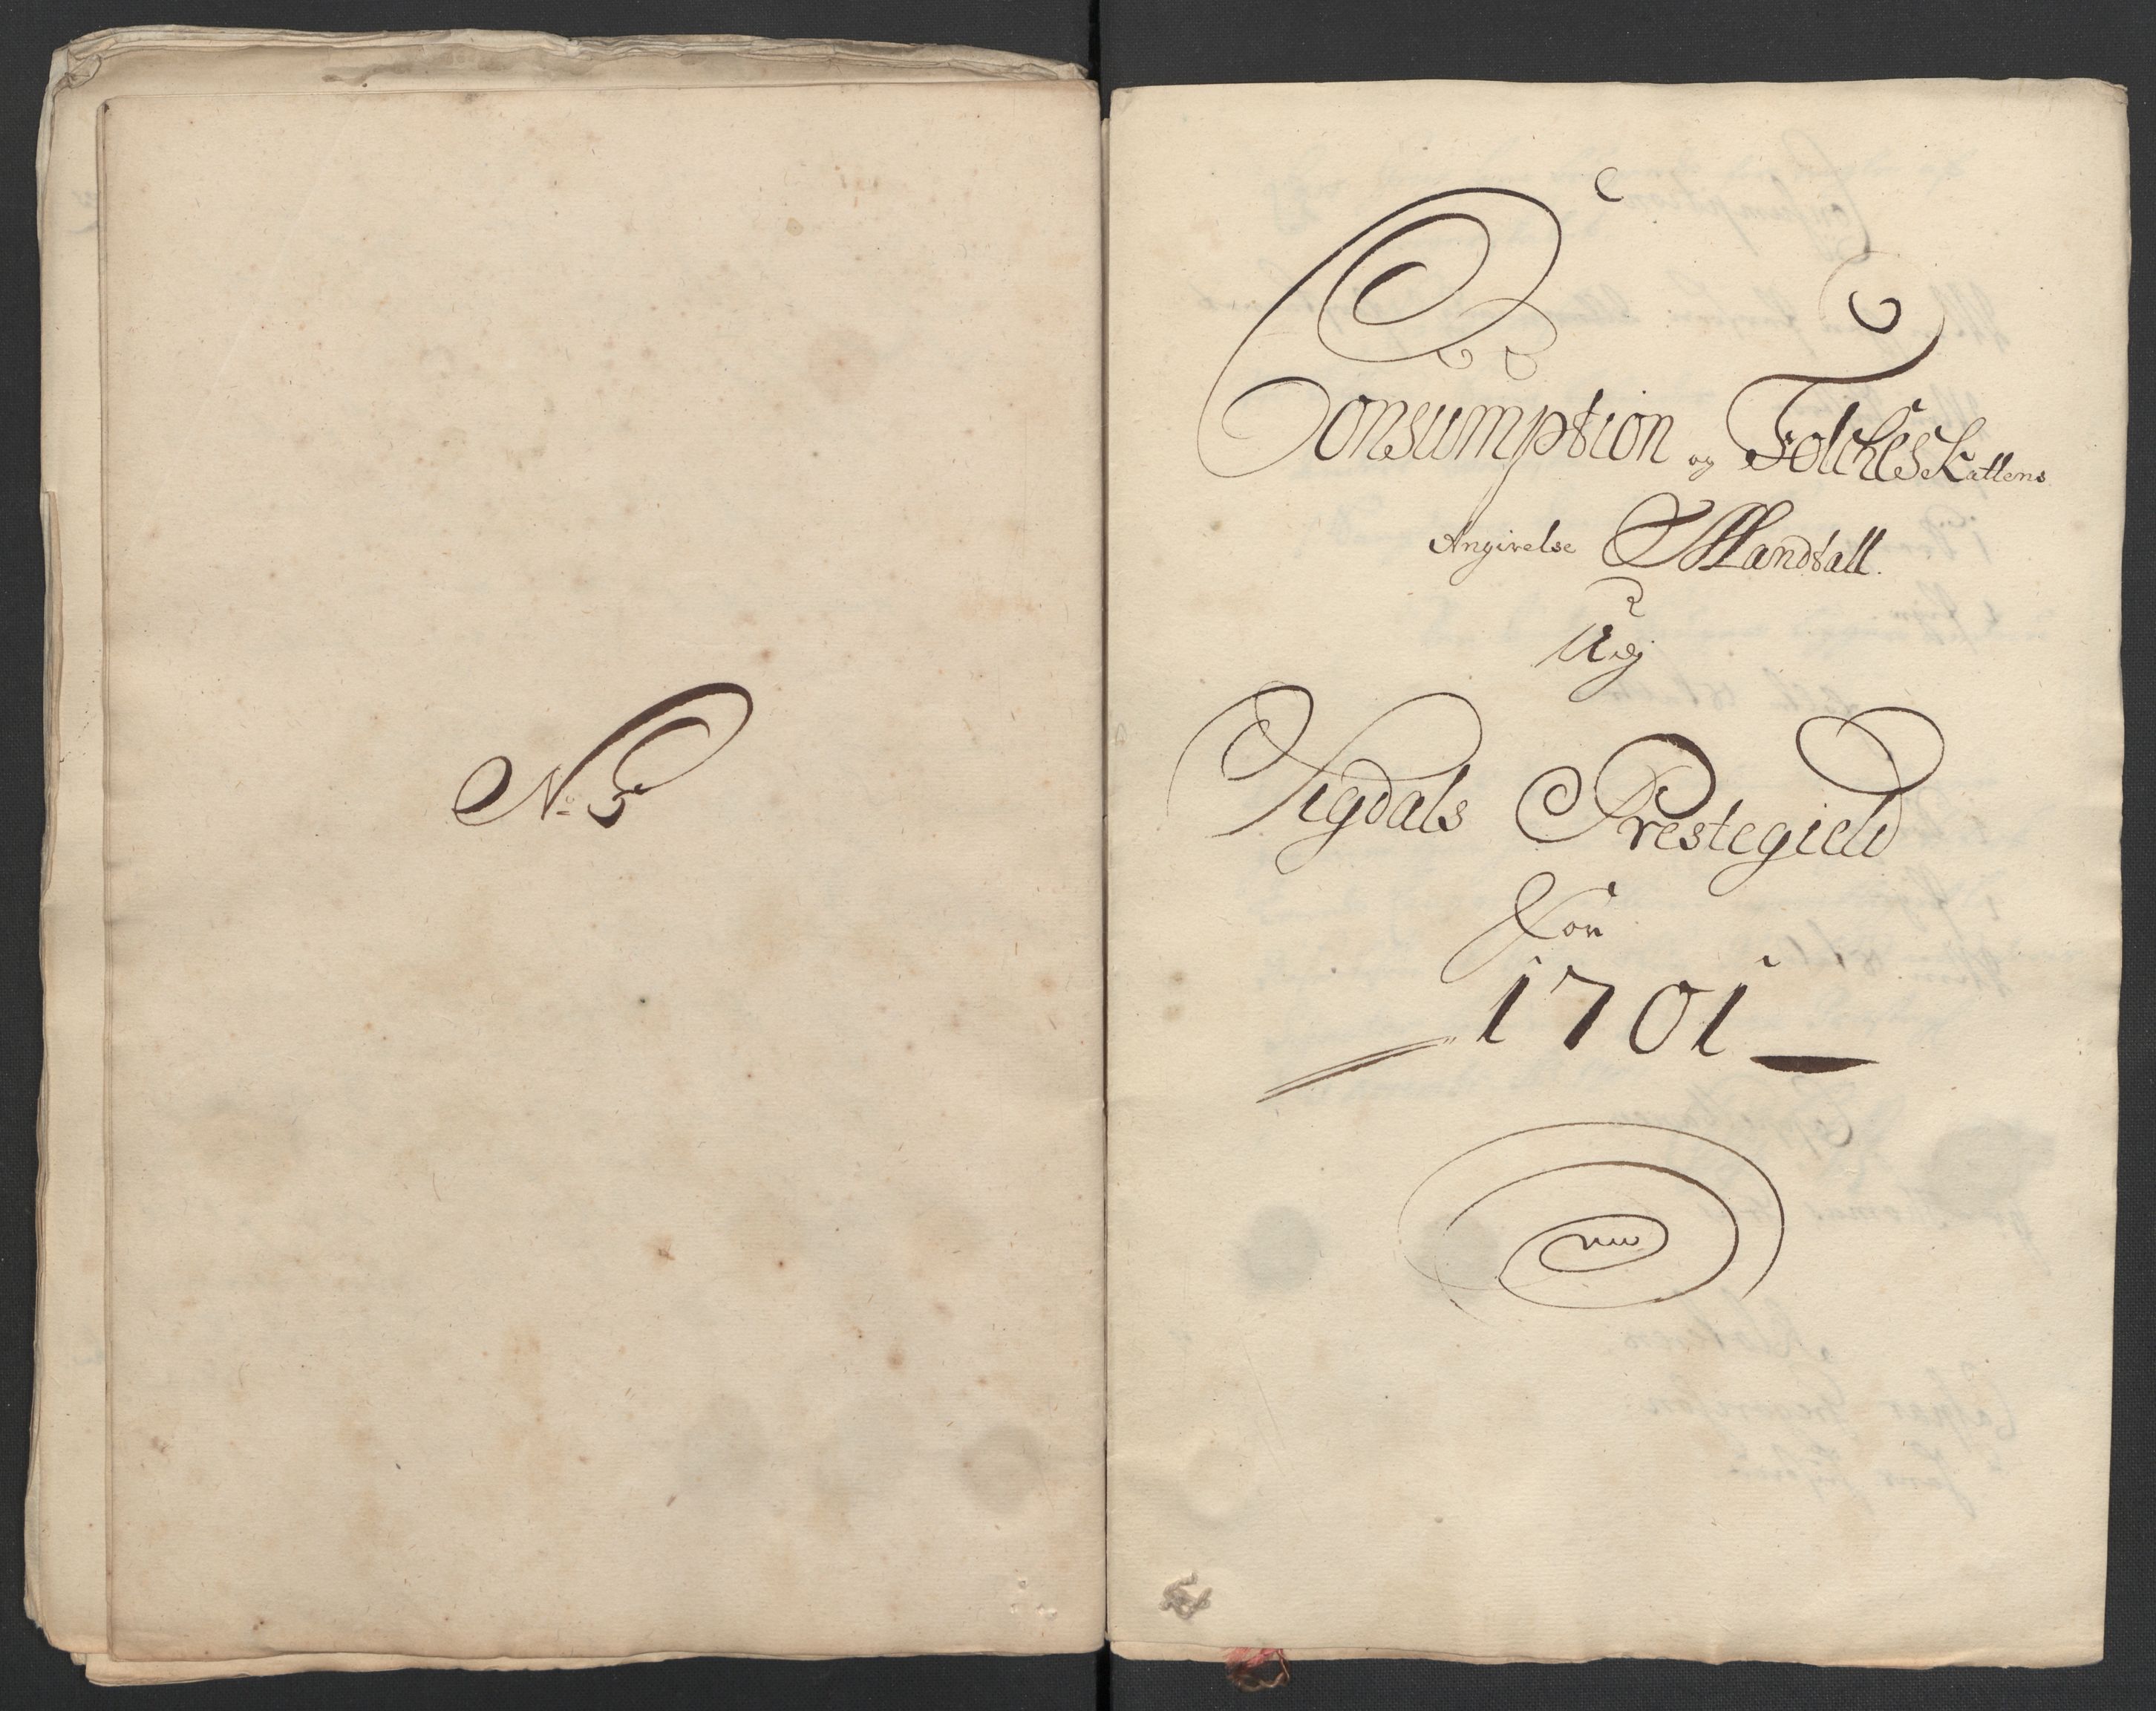 No 5
Consumption og Folcheskattens
Angivelse Mandtall.
Udj
Sigdals Prestegield
For
1701